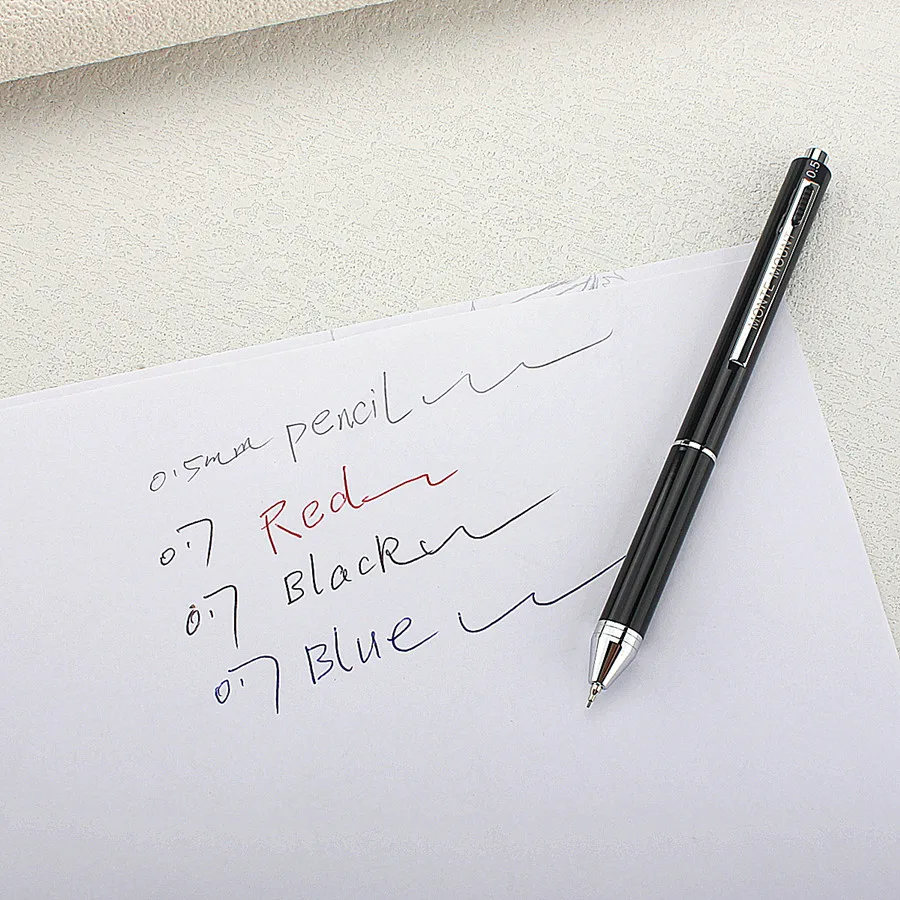 0.5mm pencil
0.7 Red
0.7 Black
0.7 Blue
0.5
MONTE MOUNT